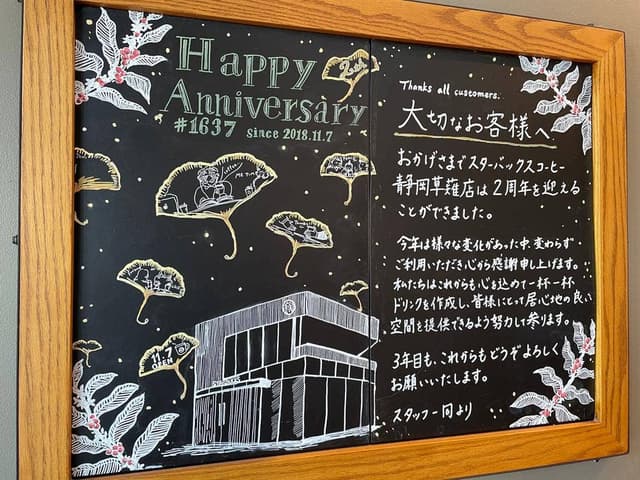 Happy
2nd
Anniversary
#1637 since 2018.11.7
11.7
OPEN
Thanks all customers.
大切なお客様へ
おかげさまでスターバックスコーヒー
静岡草薙店は2周年を迎える
ことができました。
今年は様々な変化があった中、変わらず
ご利用いただき心から感謝申し上げます。
私たちはこれからも心を込めて一杯一杯
ドリンクを作成し、皆様にとって居心地の良い
空間を提供できるよう努力して参ります。
3年目も、これからもどうぞよろしく
お願いいたします。
スタッフ一同より